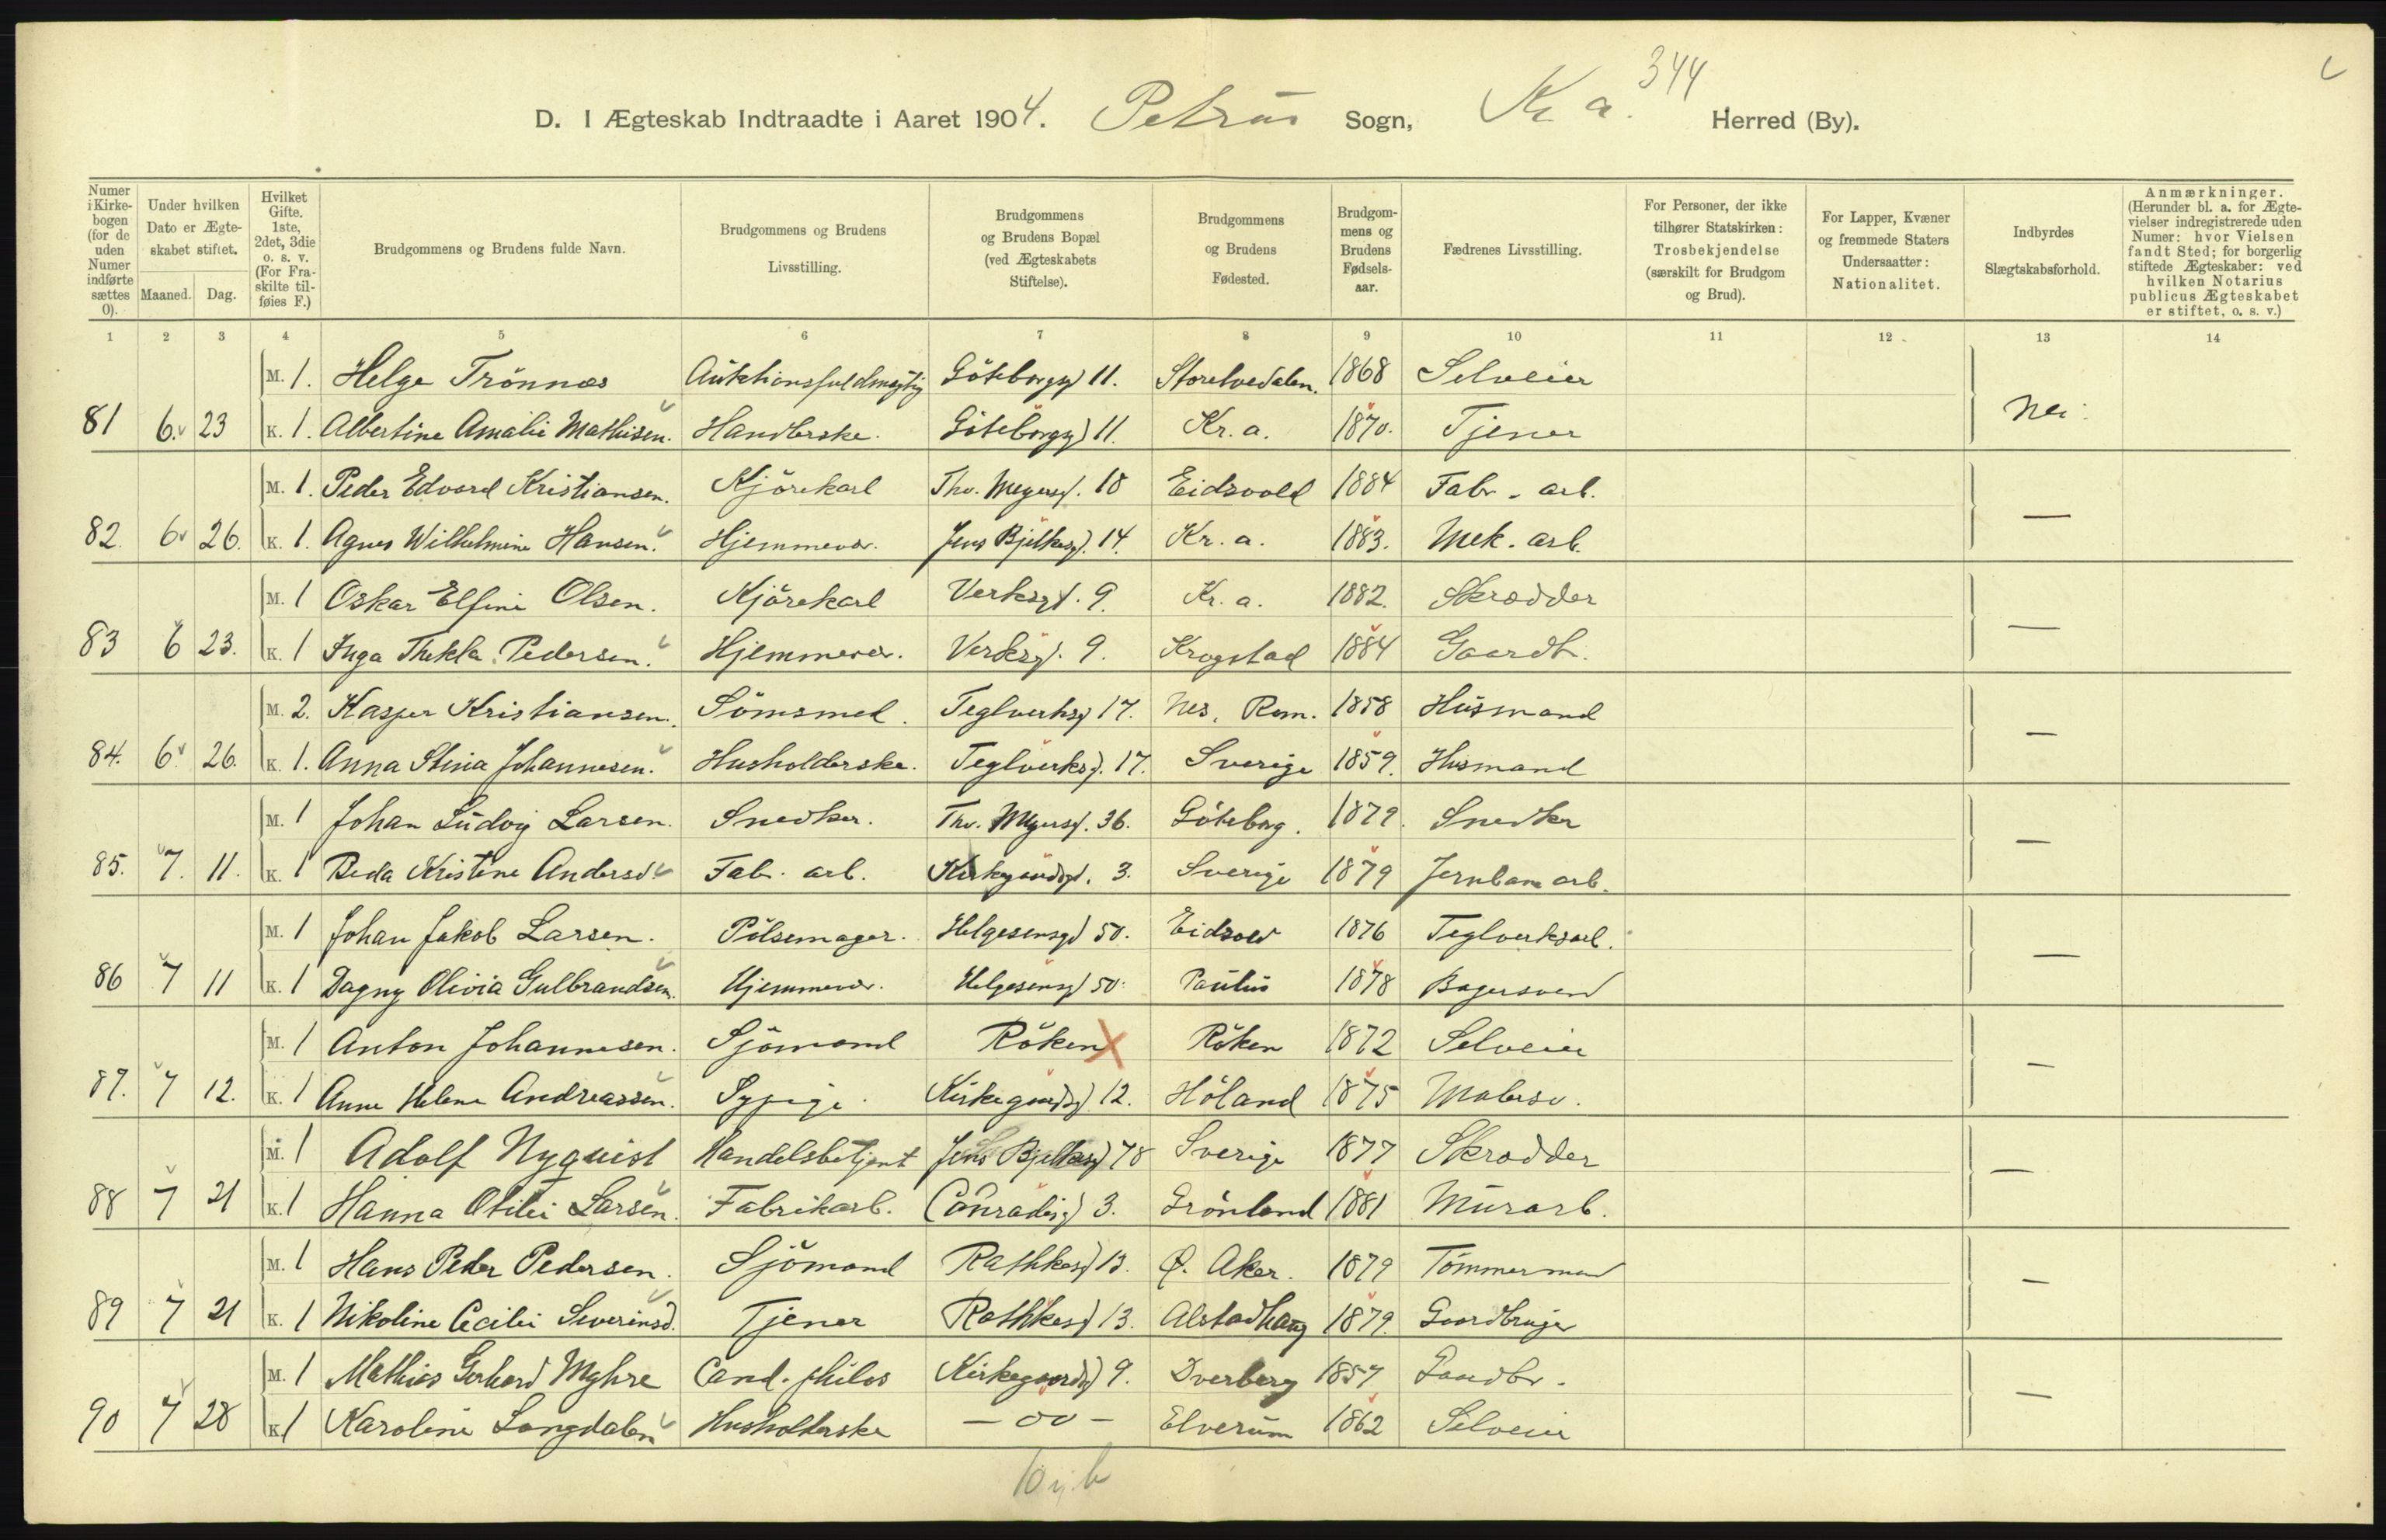 344
D. I Ægteskab Indtraadte i Aaret 1904. Petrus Sogn, Kr. a. Herred (By).
Numer i Kirke-bogen (for de uden Numer indførte sættes 0).
Under hvilken Dato er Ægte-skabet stiftet. Maaned. Dag.
Hvilket Gifte. 1ste, 2det, 3die o. s. v. (For Fra-skilte til-føies F.)
Brudgommens og Brudens fulde Navn.
Brudgommens og Brudens Livsstilling.
Brudgommens og Brudens Bopæl (ved Ægteskabets Stiftelse).
Brudgommens og Brudens Fødested.
Brudgom-mens og Brudens Fødsels-aar.
Fædrenes Livsstilling.
For Personer, der ikke tilhører Statskirken: Trosbekjendelse (særskilt for Brudgom og Brud).
For Lapper, Kvæner og fremmede Staters Undersaatter: Nationalitet.
Indbyrdes Slægtskabsforhold.
Anmærkninger. (Herunder bl. a. for Ægte-vielser indregistrerede uden Numer: hvor Vielsen fandt Sted; for borgerlig stiftede Ægteskaber: ved hvilken Notarius publicus Ægteskabet er stiftet, o. s. v.)
1 2 3 4 5 6 7 8 9 10 11 12 13 14
M. 1. Helge Trönnæs Auktionsfuldmægtig Göteborgg 11. Storelvedalen. 1868 Selveier
81 6. 23 K. 1. Albertine Amalie Mathisen. Handlerske. Göteborgg 11. Kr. a. 1870. Tjener Nei
M. 1. Peder Edvard Kristiansen. Kjörekarl Thv. Meyersg. 18 Eidsvold 1884 Fabr. arb.
82. 6 26. K. 1. Agnes Wilhelmine Hansen. Hjemmevær. Jens Bjelkesg. 14. Kr. a. 1883. Mek. arb. —
M. 1 Oskar Elfini Olsen. Kjörekarl Verksgt. 9. Kr. a. 1882. Skrædder
83 6 23. K. 1 Inga Thekla Pedersen. Hjemmevær. Verksgt. 9. Krogstad 1884 Gaardb. —
M. 2. Kasper Kristiansen. Sömsmed. Teglverksg 17. Nes, Rom. 1858 Husmand
84. 6. 26. K. 1. Anna Stina Johannesen. Husholderske. Teglverksg. 17. Sverige 1859. Husmand —
M. 1 Johan Ludvig Larsen. Snedker. Thv. Meyersg. 36. Göteborg. 1879. Snedker
85. 7. 11. K. 1 Beda Kristine Andersd. Fabr. arb. Kirkegaardsgt. 3. Sverige 1879 Jernbane arb. —
M. 1 Johan Jakob Larsen. Pölsemager. Helgesensgd 50. Eidsvold 1876 Teglverksarb.
86 7 11 K. 1 Dagny Olivia Gulbrandsen. Hjemmevær. Helgesensgd 50. Paulus 1878 Bagersvend —
M. 1 Anton Johannesen. Sjömand Röken Röken 1872 Selveier
87. 7 12. K. 1 Anne Helene Andreassen. Sypige. Kirkegaardsg 12. Höland 1875 Malersv. —
M. 1 Adolf Nyquist Handelsbetjent Jens Bjelkesg 78 Sverige 1877 Skrædder
88 7 21 K. 1 Hanna Otilie Larsen. Fabrikarb. Conradisg 3. Grönland 1881 Murarb. —
M. 1 Hans Peder Pedersen. Sjömand Rathkesg 13. Ø. Aker. 1879 Tömmermand
89 7 21 K. 1 Nikoline Cecilie Severinsd. Tjener Rathkesg 13. Alstadhaug 1879. Gaardbruger —
M. 1 Mathias Gerhard Myhre Cand. philos Kirkegaardsg 9. Dverberg 1857 Gaardbr.
90 7 28 K. 1 Karoline Langdalen Husholderske — oo — Elverum 1862 Selveier —